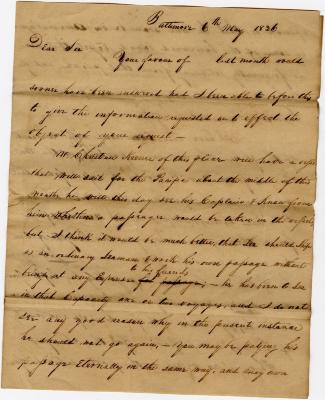 Baltimore 6th May 1826
Dear Sir
Your favour of last month would
sooner have been answered had I been able to before this
to give the information requested or to effect the
Object of your request —
Mr. of this place will have a
that will sail for the Pacific about the middle of this
month, he will this day see his Captain &
him a passage would be taken in the
but I think it would be much better, that he should Ship
as an ordinary Seaman & work his own passage without
being at any Expense to his friends — he has been to Sea
in that Capacity one or two voyages, and I do not
see any good reason why in the present instance
he should not go again, — You may be paying his
passage Eternally in the same way, and my own